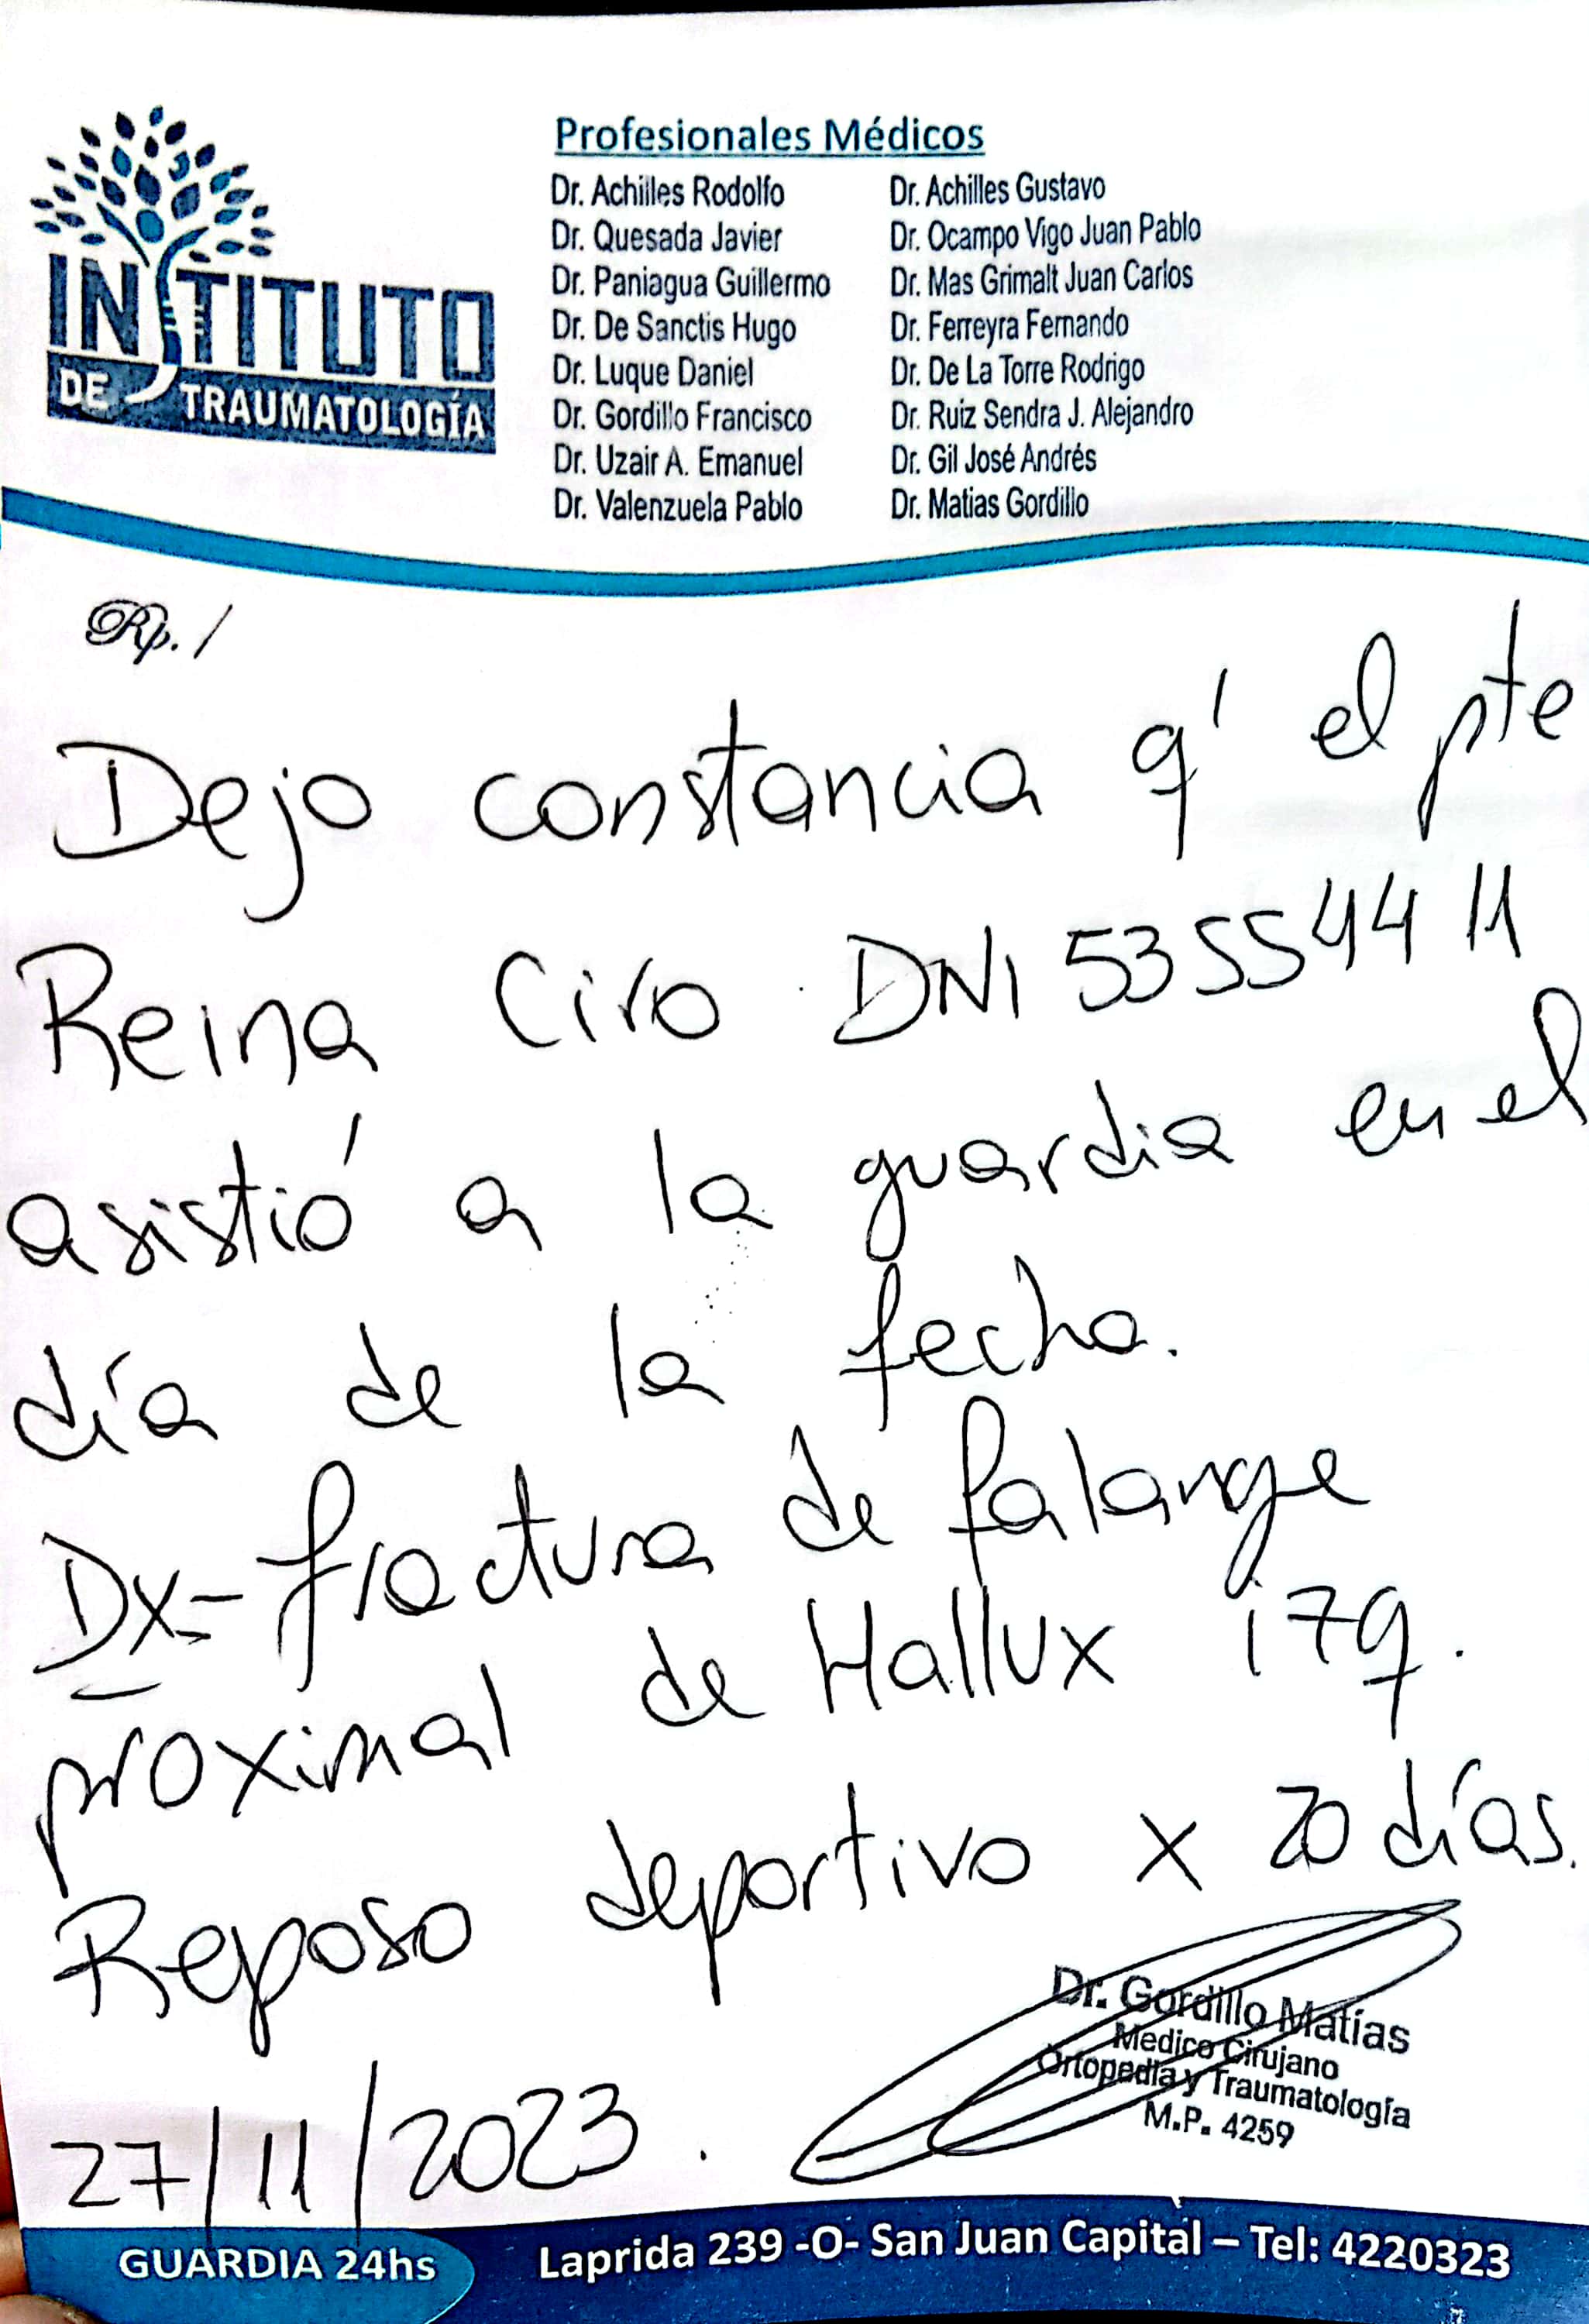 INSTITUTO
DE TRAUMATOLOGÍA
Profesionales Médicos
Dr. Achilles Rodolfo
Dr. Quesada Javier
Dr. Paniagua Guillermo
Dr. De Sanctis Hugo
Dr. Luque Daniel
Dr. Gordillo Francisco
Dr. Uzair A. Emanuel
Dr. Valenzuela Pablo
Dr. Achilles Gustavo
Dr. Ocampo Vigo Juan Pablo
Dr. Mas Grimalt Juan Carlos
Dr. Ferreyra Fernando
Dr. De La Torre Rodrigo
Dr. Ruiz Sendra J. Alejandro
Dr. Gil José Andrés
Dr. Matias Gordillo
Rp. /
Dejo constancia q' el pte
Reina Ciro DNI 5355544 11
asistió a la guardia en el
día de la fecha.
Dx= fractura de falange
proximal de Hallux izq.
Reposo deportivo x 20 días.
Dr. Gordillo Matías
Medico Cirujano
Ortopedia y Traumatología
M.P. 4259
27/11/2023.
GUARDIA 24hs
Laprida 239 -O- San Juan Capital – Tel: 4220323